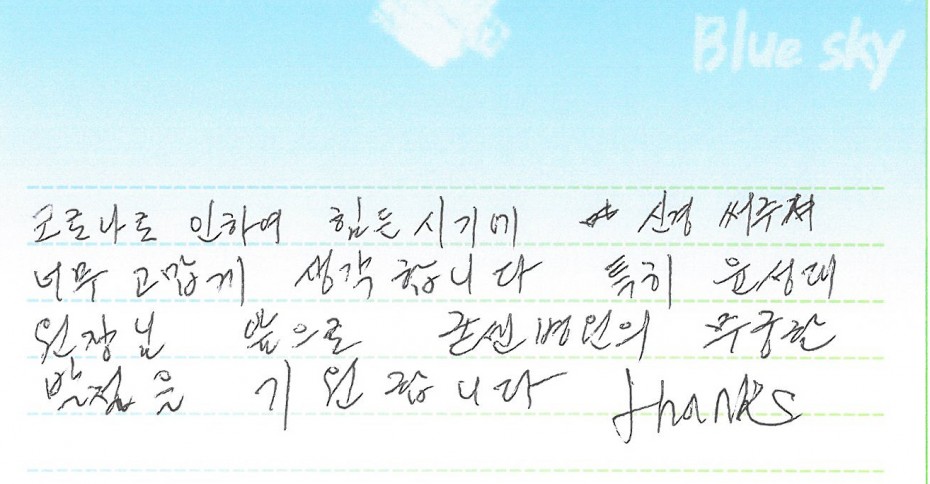 Blue sky
코로나로 인하여 힘든 시기에 신경 써주셔
너무 고맙게 생각합니다 특히 윤성대
원장님 앞으로 굳센병원의 무궁한
발전을 기원합니다 thanks